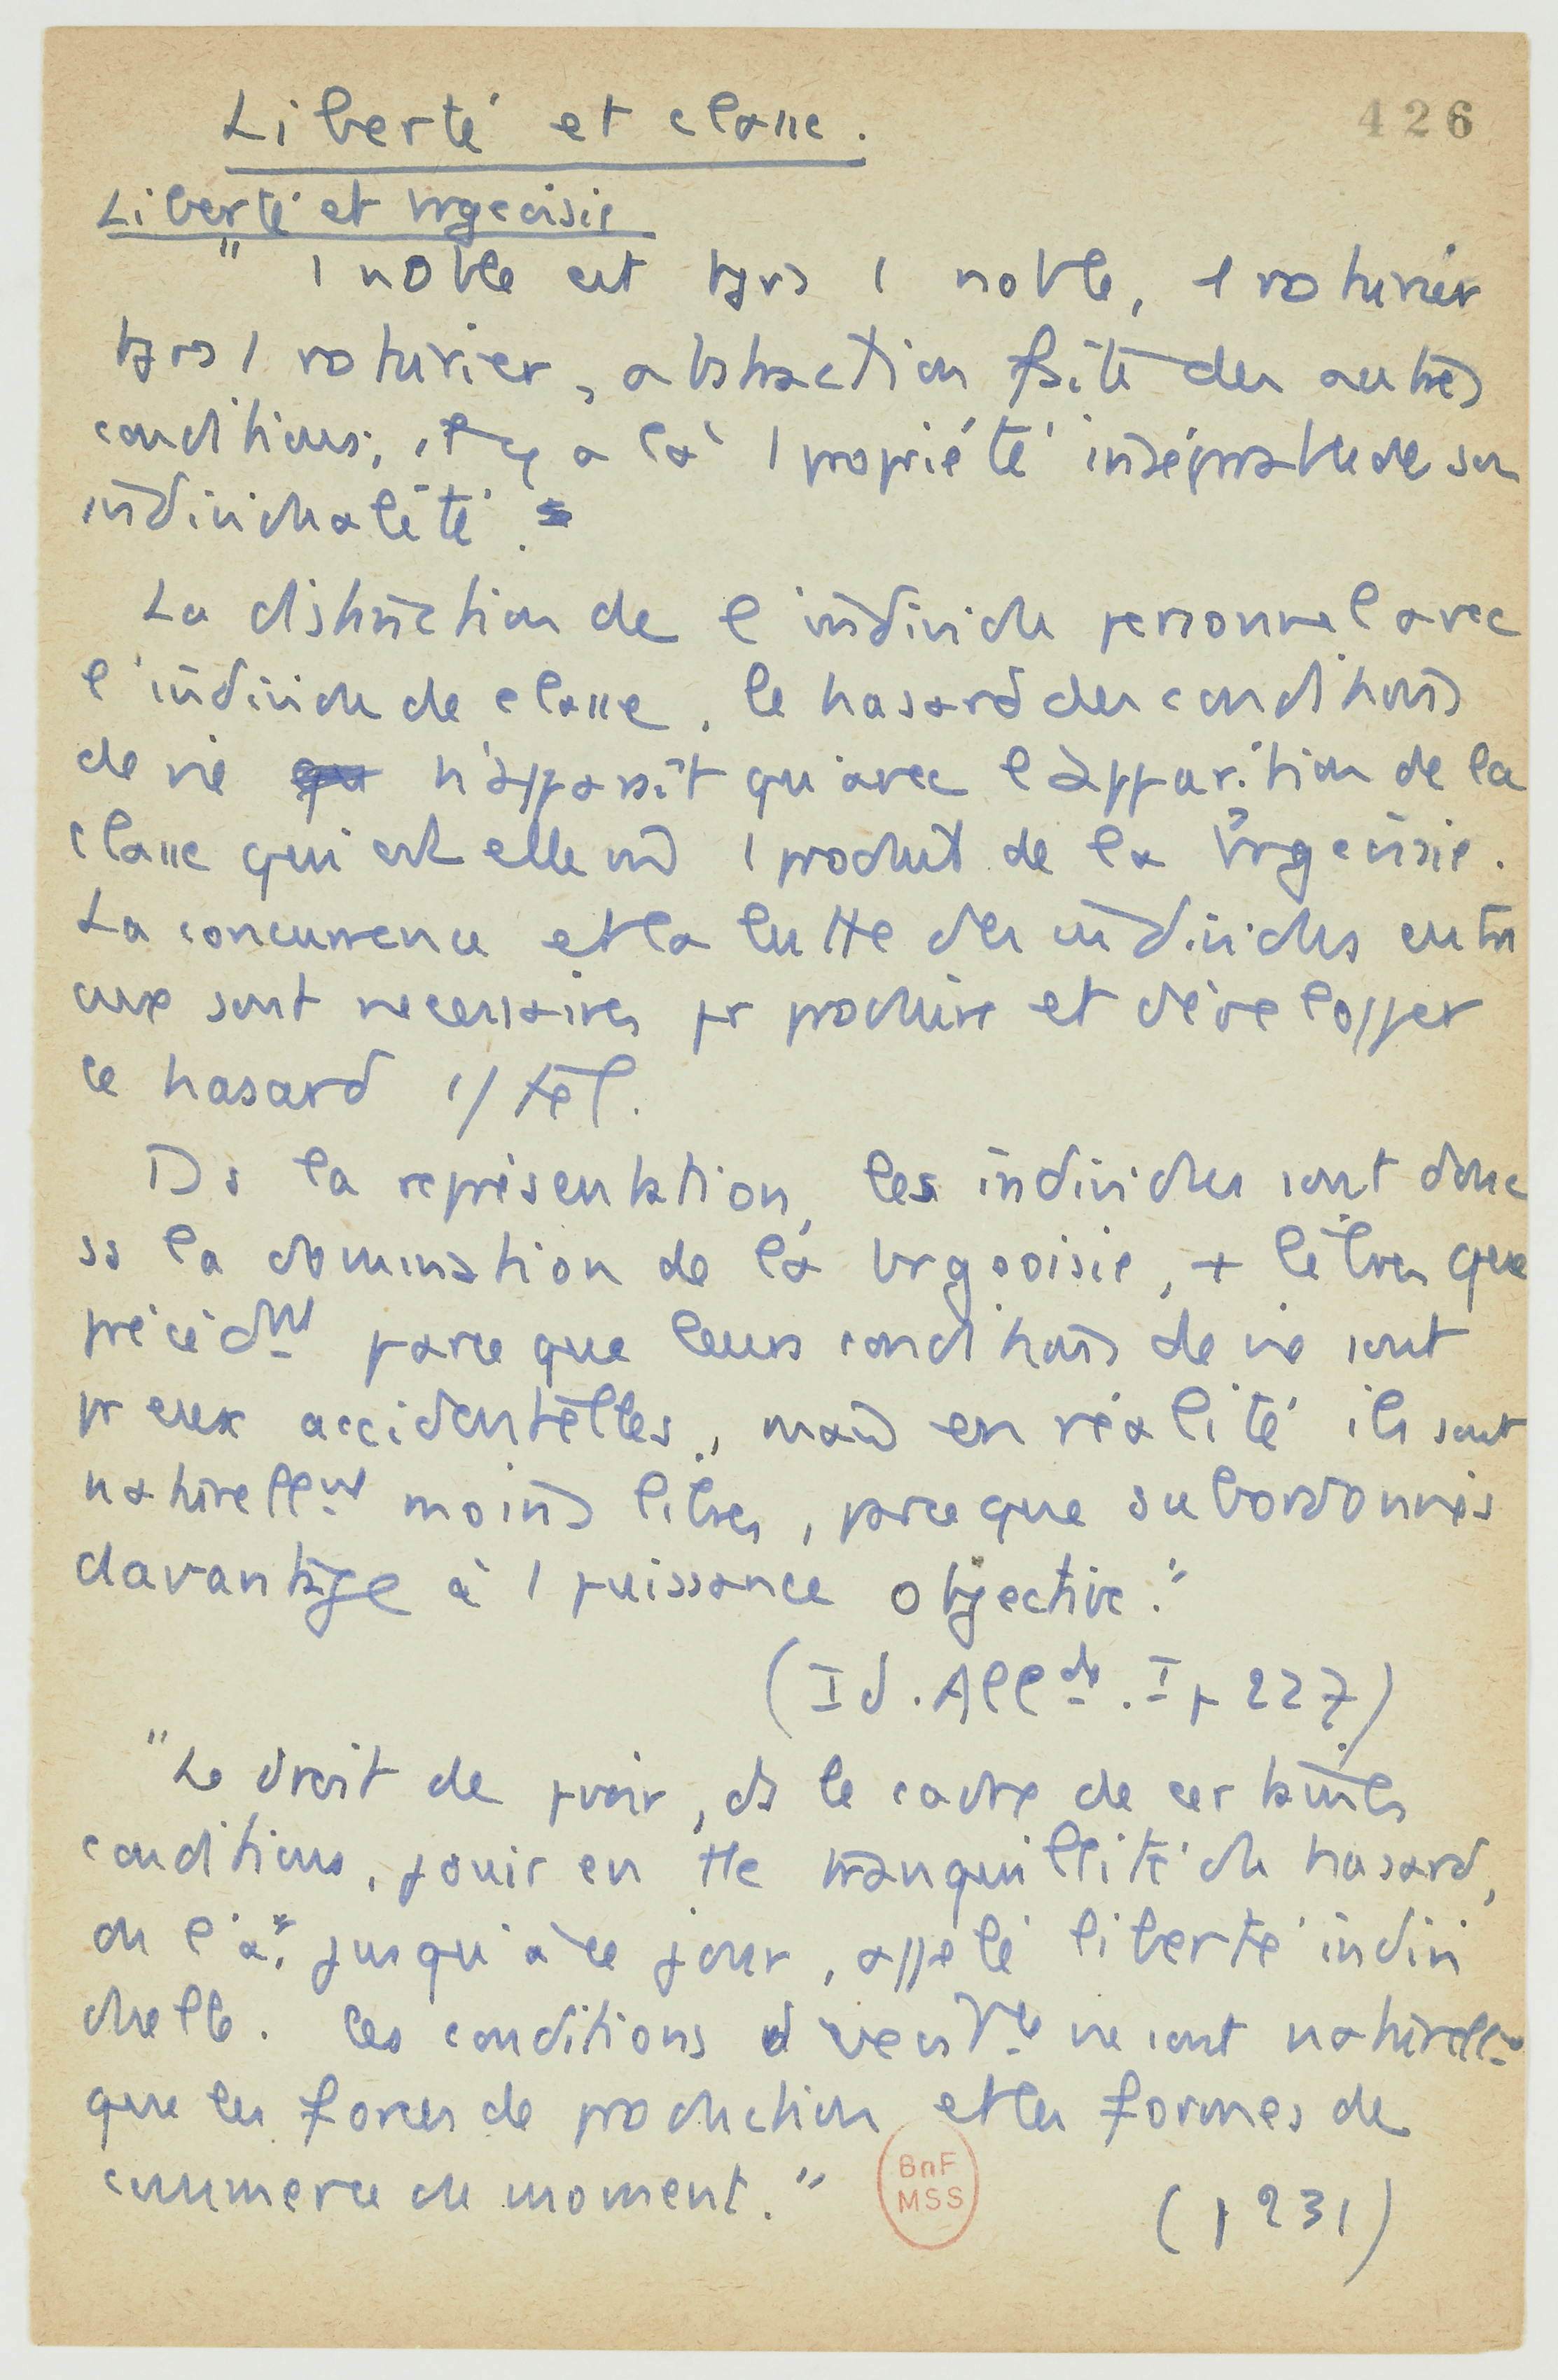 426
Liberté et classe.
Liberté et brgeoisie
" 1 noble est tjrs 1 noble, 1 roturier
tjrs 1 roturier, abstraction faite des autres
conditions; il y a là 1 propriété inséparable de son
individualité.
La distinction de l'individu personnel avec
l'individu de classe, le hasard des conditions
de vie n'apparaît qu'avec l'apparition de la
classe qui est elle m̂ 1 produit de la brgeoisie.
La concurrence et la lutte des individus entre
eux sont necessaires pr produire et développer
ce hasard c/ tel.
Ds la représentation, les individus sont donc
ss la domination de la brgeoisie, + libres que
précédmt parce que leurs conditions de vie sont
pr eux accidentelles, mais en réalité ils sont
naturellmt moins libres, parce que subordonnés
davantage à 1 puissance objective."
(Id. Allde. I p 227)
"Le droit de pvoir, ds le cadre de certaines
conditions, jouir en tte tranquillité du hasard,
on l'a, jusqu'à ce jour, appelé liberté indivi
duelle. Ces conditions ne sont naturellmt
que les forces de production et les formes de
commerce du moment."
(p 231)
BnF
MSS